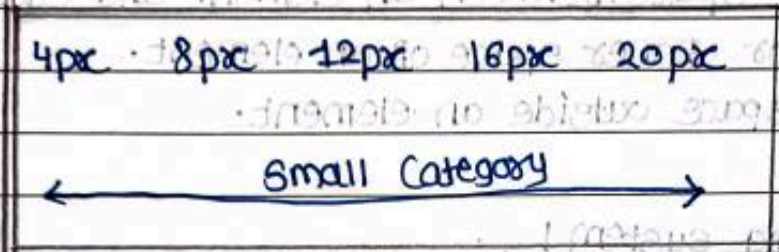 4px 8px 12px 16px 20px
Small Category